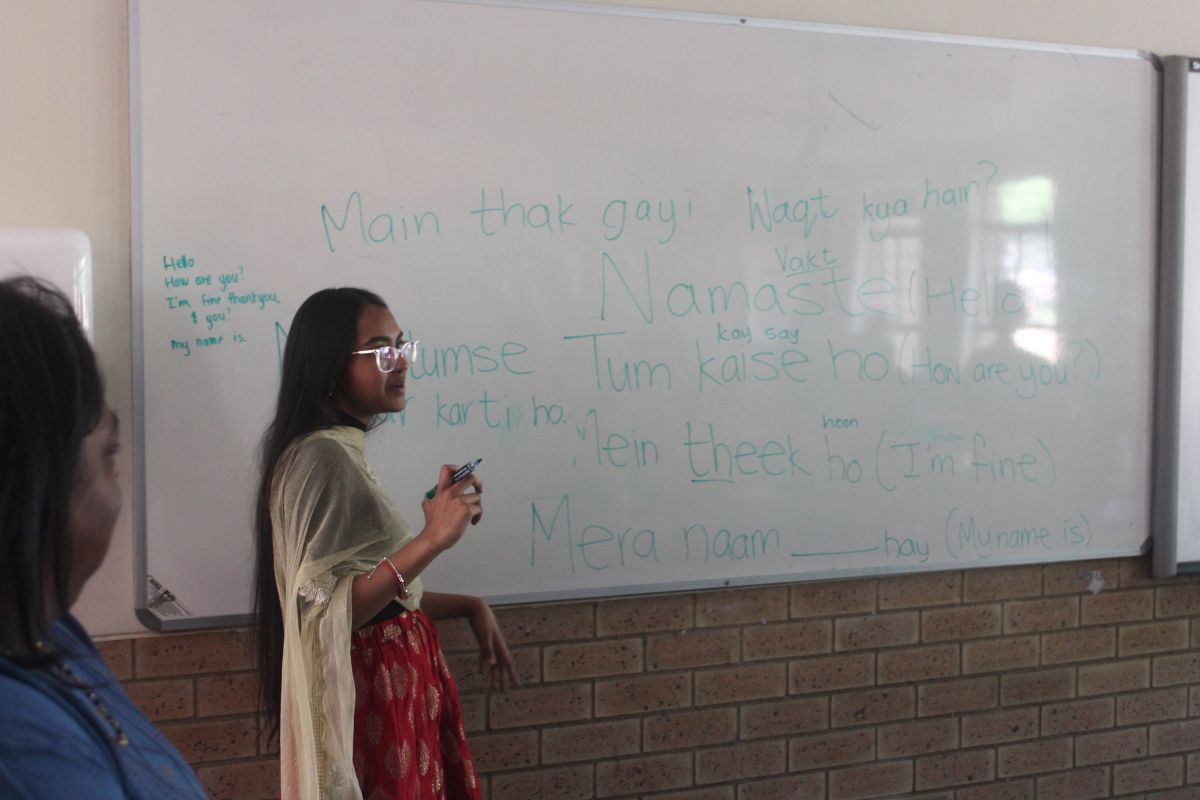 Main thak gayi Waqt kya hain?
Vakt
Hello
How are you?
I'm fine thankyou,
& you?
My name is.
Namaste (Hello
tumse
karti ho.
kay say
Tum kaise ho (How are you?)
hoon
Mein theek ho (I'm fine)
Mera naam ______ hay (My name is)